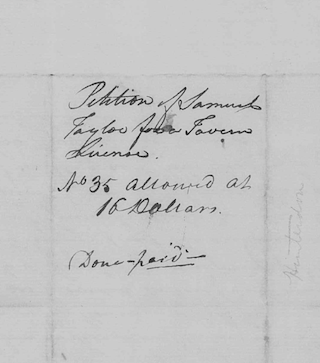 Petition of Samuel
Taylor for a Tavern
License.
No 35 allowed at
16 Dollars.
Done - paid -
Hunterdon